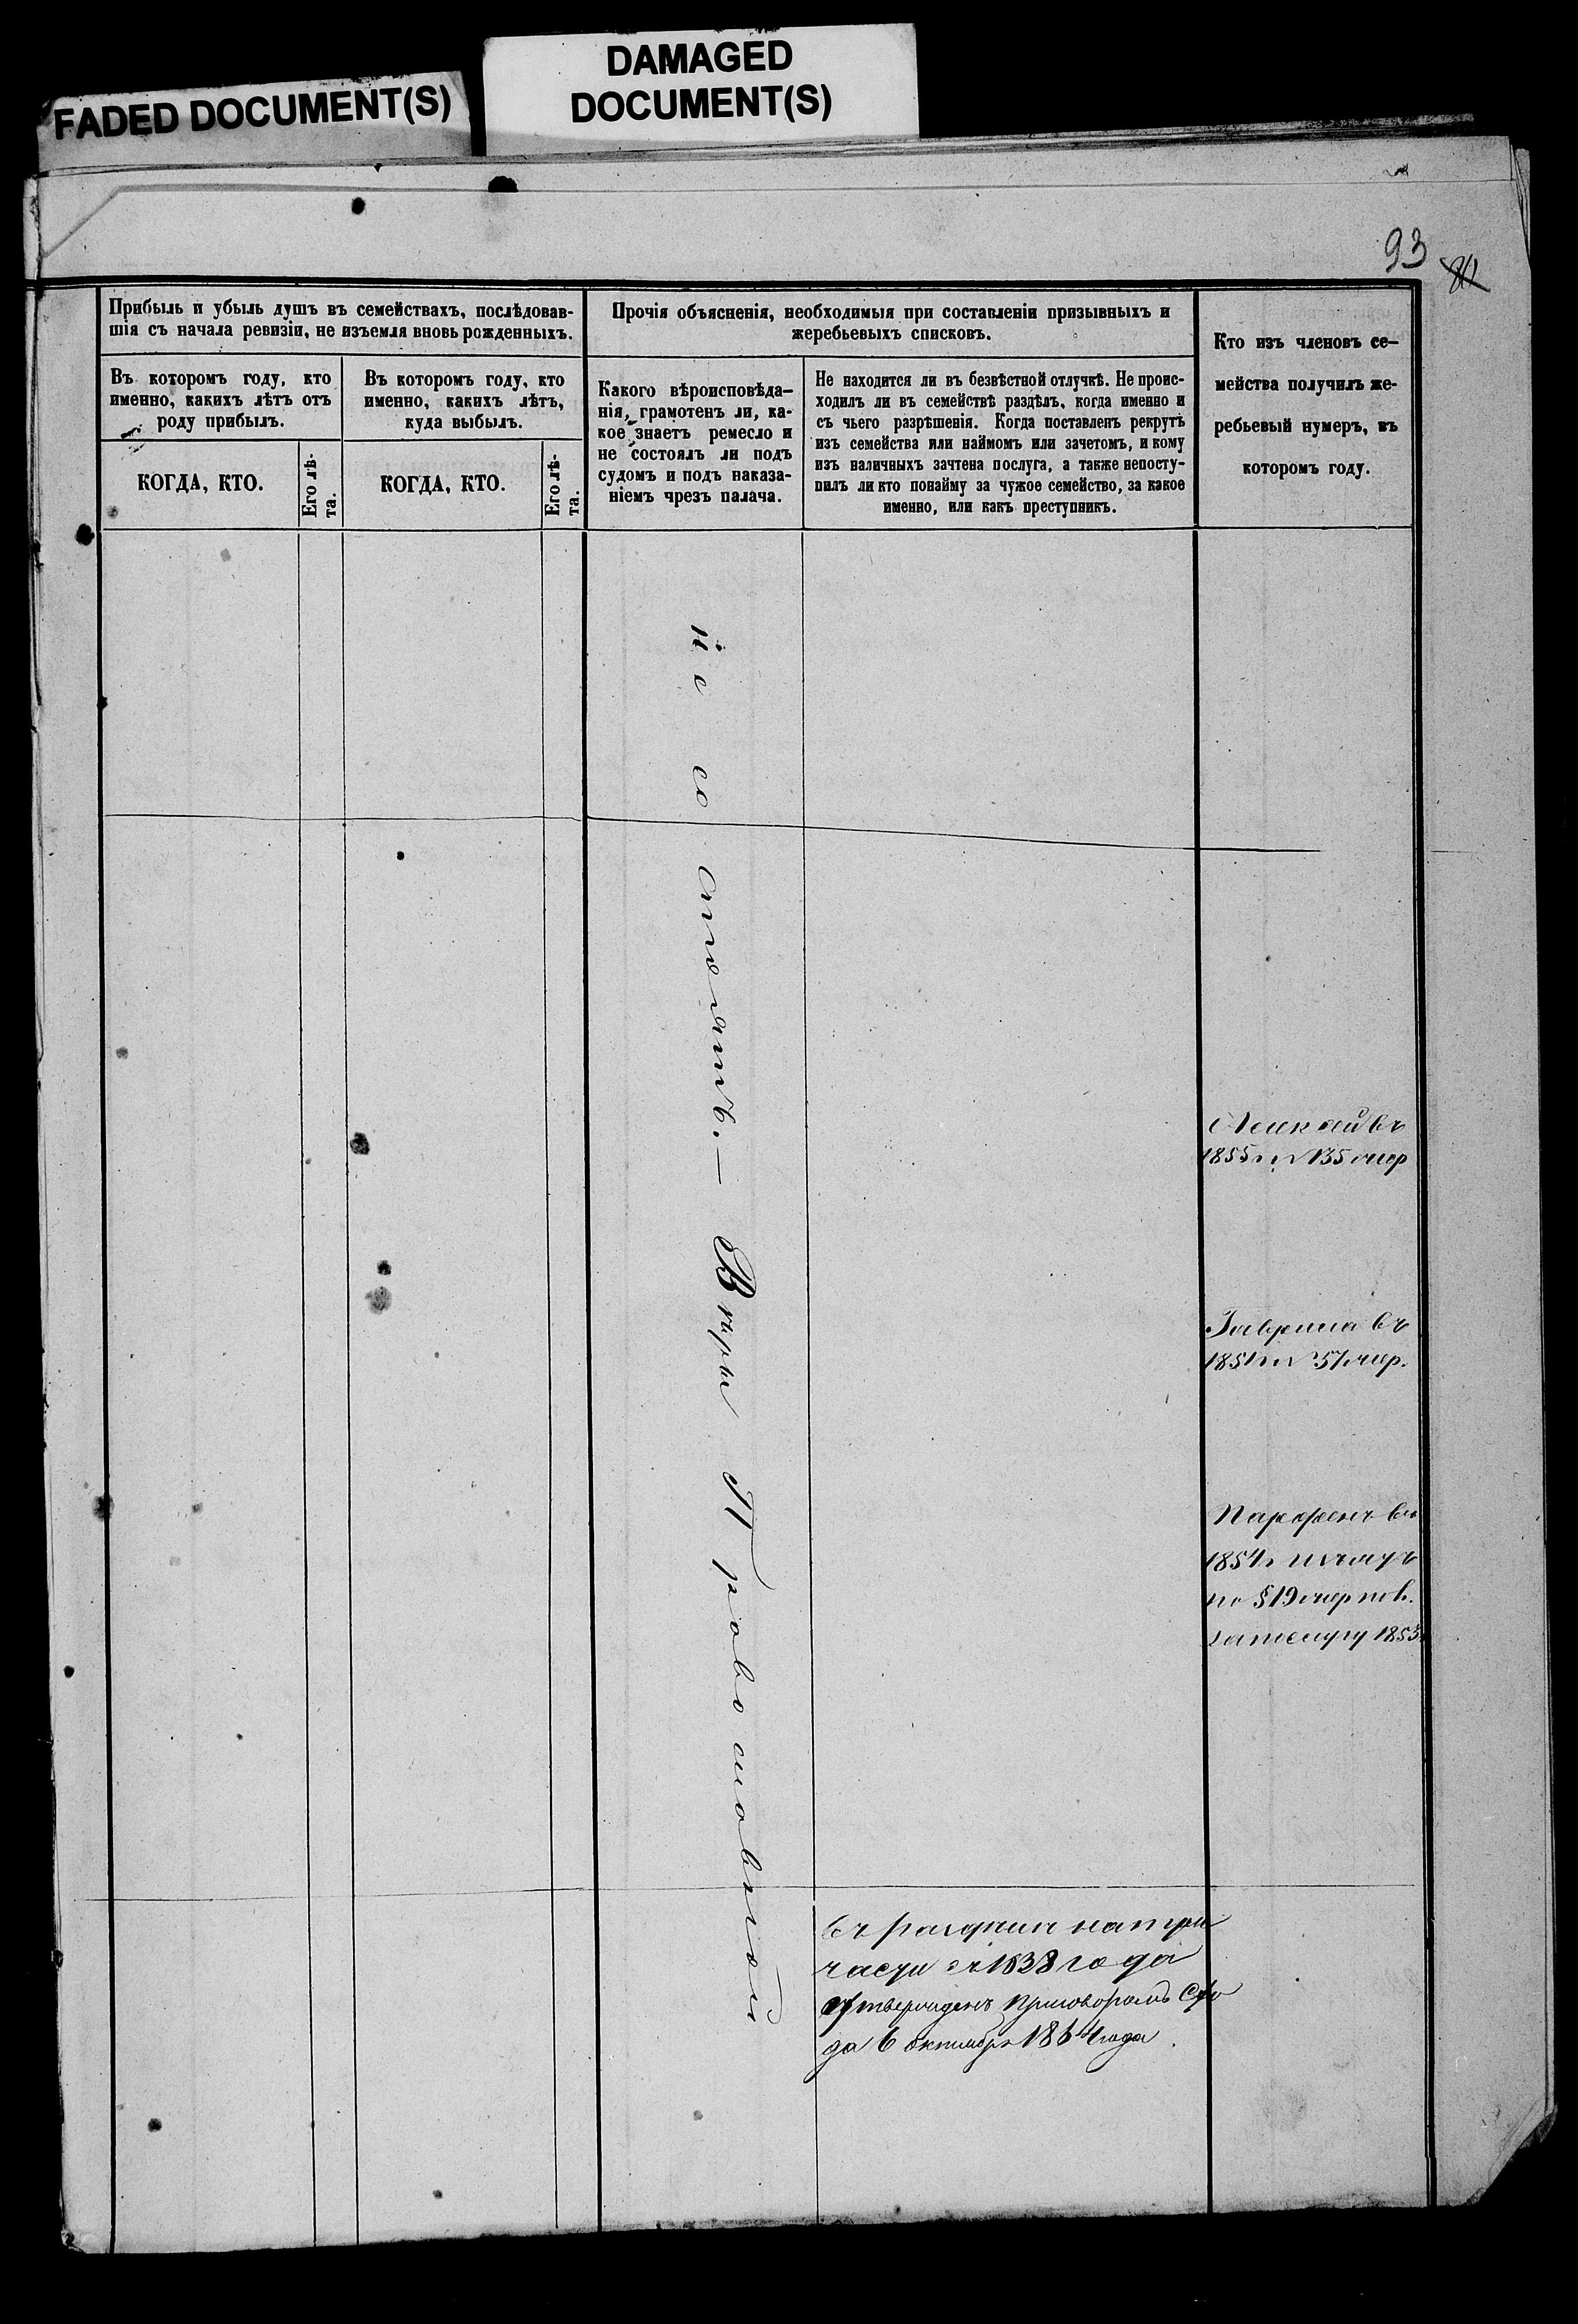 FADED DOCUMENT(S)
DAMAGED
DOCUMENT(S)
93
Прибыль и убыль душъ въ семействахъ, послѣдовав-
шія съ начала ревизіи, не изъемля вновь рожденныхъ.
Въ которомъ году, кто
именно, какихъ лѣтъ отъ
роду прибылъ.
КОГДА, КТО.
Его лѣ-
та.
Въ которомъ году, кто
именно, какихъ лѣтъ,
куда выбылъ.
КОГДА, КТО.
Его лѣ-
та.
Прочія объясненія, необходимыя при составленіи призывныхъ и
жеребьевыхъ списковъ.
Какого вѣроисповѣда-
нія, грамотенъ ли, ка-
кое знаетъ ремесло и
не состоялъ ли подъ
судомъ и подъ наказа-
ніемъ чрезъ палача.
Не находится ли въ безвѣстной отлучкѣ. Не проис-
ходилъ ли въ семействѣ раздѣлъ, когда именно и
съ чьего разрѣшенія. Когда поставленъ рекрутъ
изъ семейства или наймомъ или зачетомъ, и кому
изъ наличныхъ зачтена послуга, а также непосту-
пилъ ли кто понайму за чужое семейство, за какое
именно, или какъ преступникъ.
Кто изъ членовъ се-
мейства получилъ же-
ребьевый нумеръ, въ
которомъ году.
не со стоятъ. — Вѣры Православной
Алексей въ
1855 135
Гаврила въ
185 57
Парфенъ въ
185
по § 19
1853
въ на три
части 1838 года
утвержденъ приговоромъ Схо
да 6 октября 1864 года.